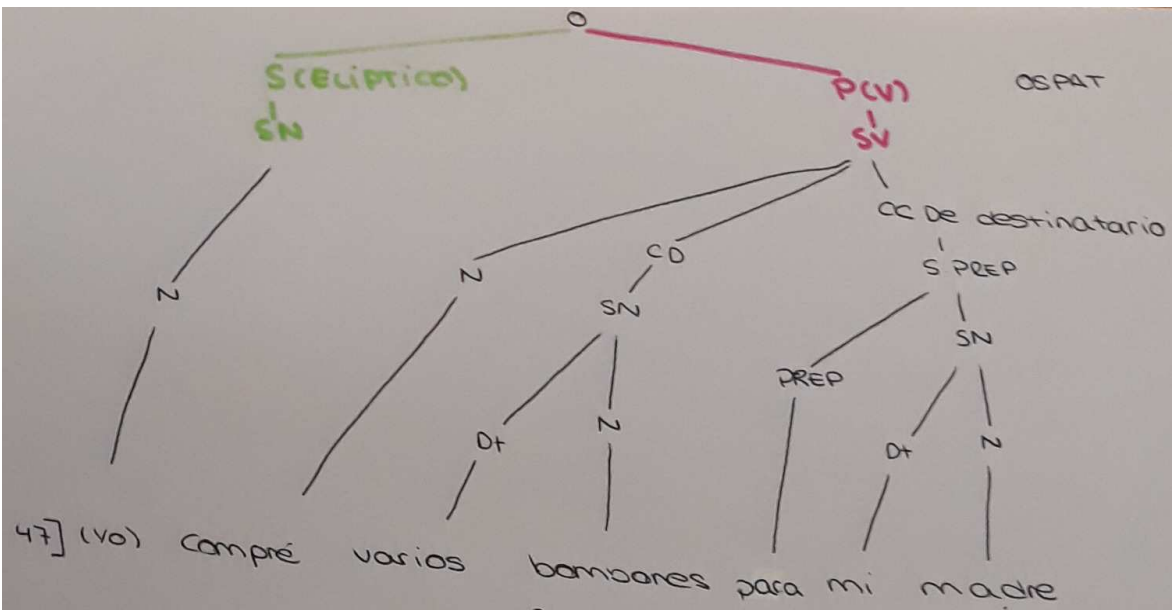 O
S(ELÍPTICO)
P(V)
OSPAT
SN
SV
CC De destinatario
N
N
CD
S PREP
SN
SN
PREP
Dt
N
Dt
N
47] (YO) compré varios bombones para mi madre